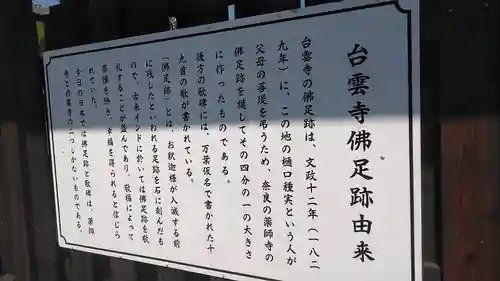 台雲寺佛足跡由来
台雲寺の佛足跡は、文政十二年(一八二
九年)に、この地の樋口種実という人が
父母の菩提を弔うため、奈良の薬師寺の
佛足跡を模してその四分の一の大きさ
に作ったものである。
後方の歌碑には、万葉仮名で書かれた十
九首の歌が書かれている。
「佛足跡」とは、お釈迦様が入滅する前
に残したといわれる足跡を石に刻んだも
ので、古来インドに於いては佛足跡を敬
礼することが盛んであり、敬福によって
罪障を除き、幸福を得られると信じら
れていた。
今日の日本では佛足跡と歌碑は、薬師
寺と台雲寺の二つしかないものである。